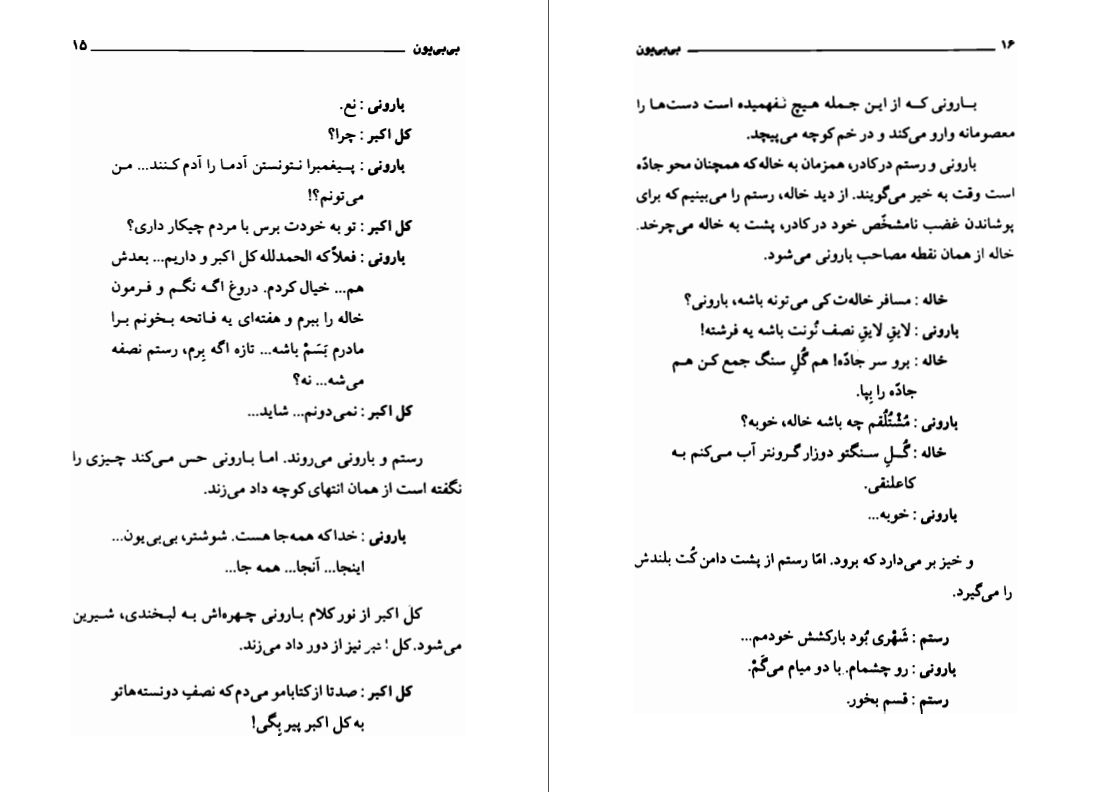 بی‌بی‌یون ۱۵
بارونی : نع.
کل اکبر : چرا؟
بارونی : پیغمبرا نتونستن آدما را آدم کنند... من
می‌تونم؟!
کل اکبر : تو به خودت برس با مردم چیکار داری؟
بارونی : فعلاً که الحمدلله کل اکبر و داریم... بعدش
هم... خیال کردم. دروغ اگه نگم و فرمون
خاله را ببرم و هفته‌ای یه فاتحه بخونم برا
مادرم بَسَمْ باشه... تازه اگه بِرم، رستم نصفه
می‌شه... نه؟
کل اکبر : نمی‌دونم... شاید...
رستم و بارونی می‌روند. اما بارونی حس می‌کند چیزی را
نگفته است از همان انتهای کوچه داد می‌زند.
بارونی : خدا که همه‌جا هست. شوشتر، بی‌بی‌یون...
اینجا... آنجا... همه جا...
کل اکبر از نور کلام بارونی چهره‌اش به لبخندی، شیرین
می‌شود. کل نیز از دور داد می‌زند.
کل اکبر : صدتا از کتابامو می‌دم که نصفِ دونسته‌هاتو
به کل اکبر پیر بِگی!
۱۶ بی‌بی‌یون
بارونی که از این جمله هیچ نفهمیده است دست‌ها را
معصومانه وارو می‌کند و در خم کوچه می‌پیچد.
بارونی و رستم در کادر، همزمان به خاله که همچنان محو جادّه
است وقت به خیر می‌گویند. از دید خاله، رستم را می‌بینیم که برای
پوشاندن غضب نامشخّص خود در کادر، پشت به خاله می‌چرخد.
خاله از همان نقطه مصاحب بارونی می‌شود.
خاله : مسافر خاله‌ت کی می‌تونه باشه، بارونی؟
بارونی : لایقِ لایقِ نصف نُونت باشه یه فرشته!
خاله : برو سر جادّه! هم گُلِ سنگ جمع کن هم
جادّه را بِپا.
بارونی : مُشْتُلُقم چه باشه خاله، خوبه؟
خاله : گُلِ سنگتو دوزار گرونتر آب می‌کنم به
کاعلنقی.
بارونی : خوبه...
و خیز بر می‌دارد که برود. امّا رستم از پشت دامن کُت بلندش
را می‌گیرد.
رستم : شَهْری بُود بارکشش خودمم...
بارونی : رو چشمام. با دو میام می‌گَمْ.
رستم : قسم بخور.